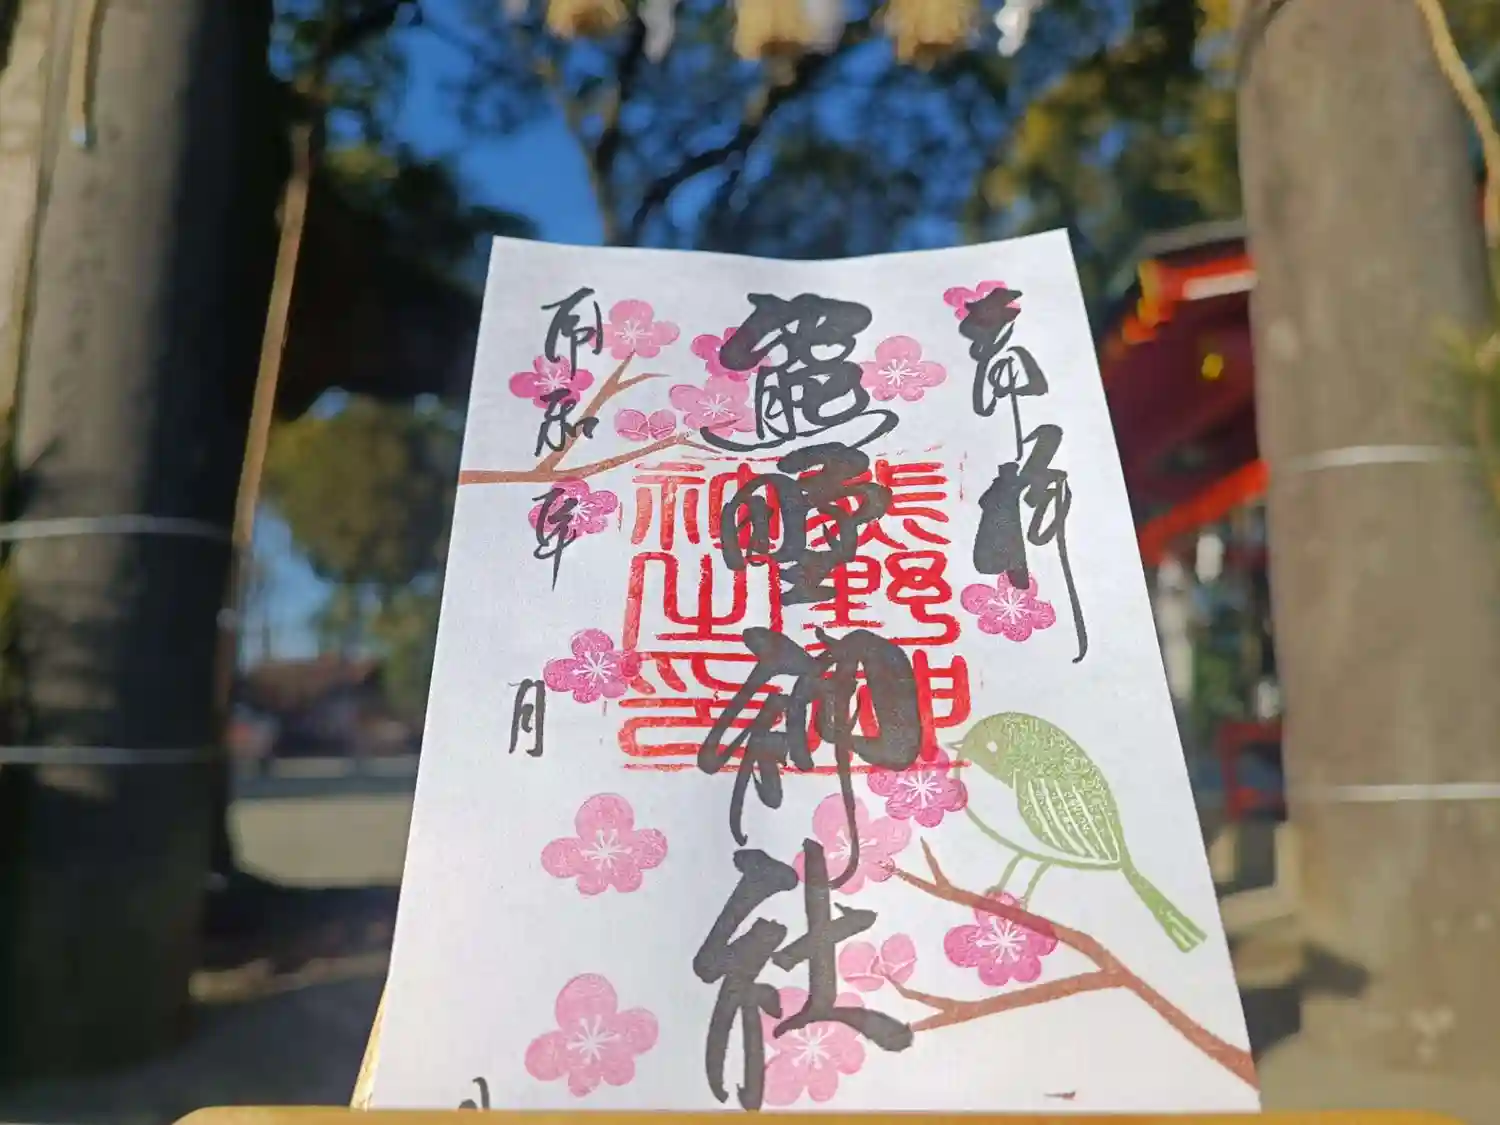 奉拝
熊野神社
熊野神社之印
令和 年
月